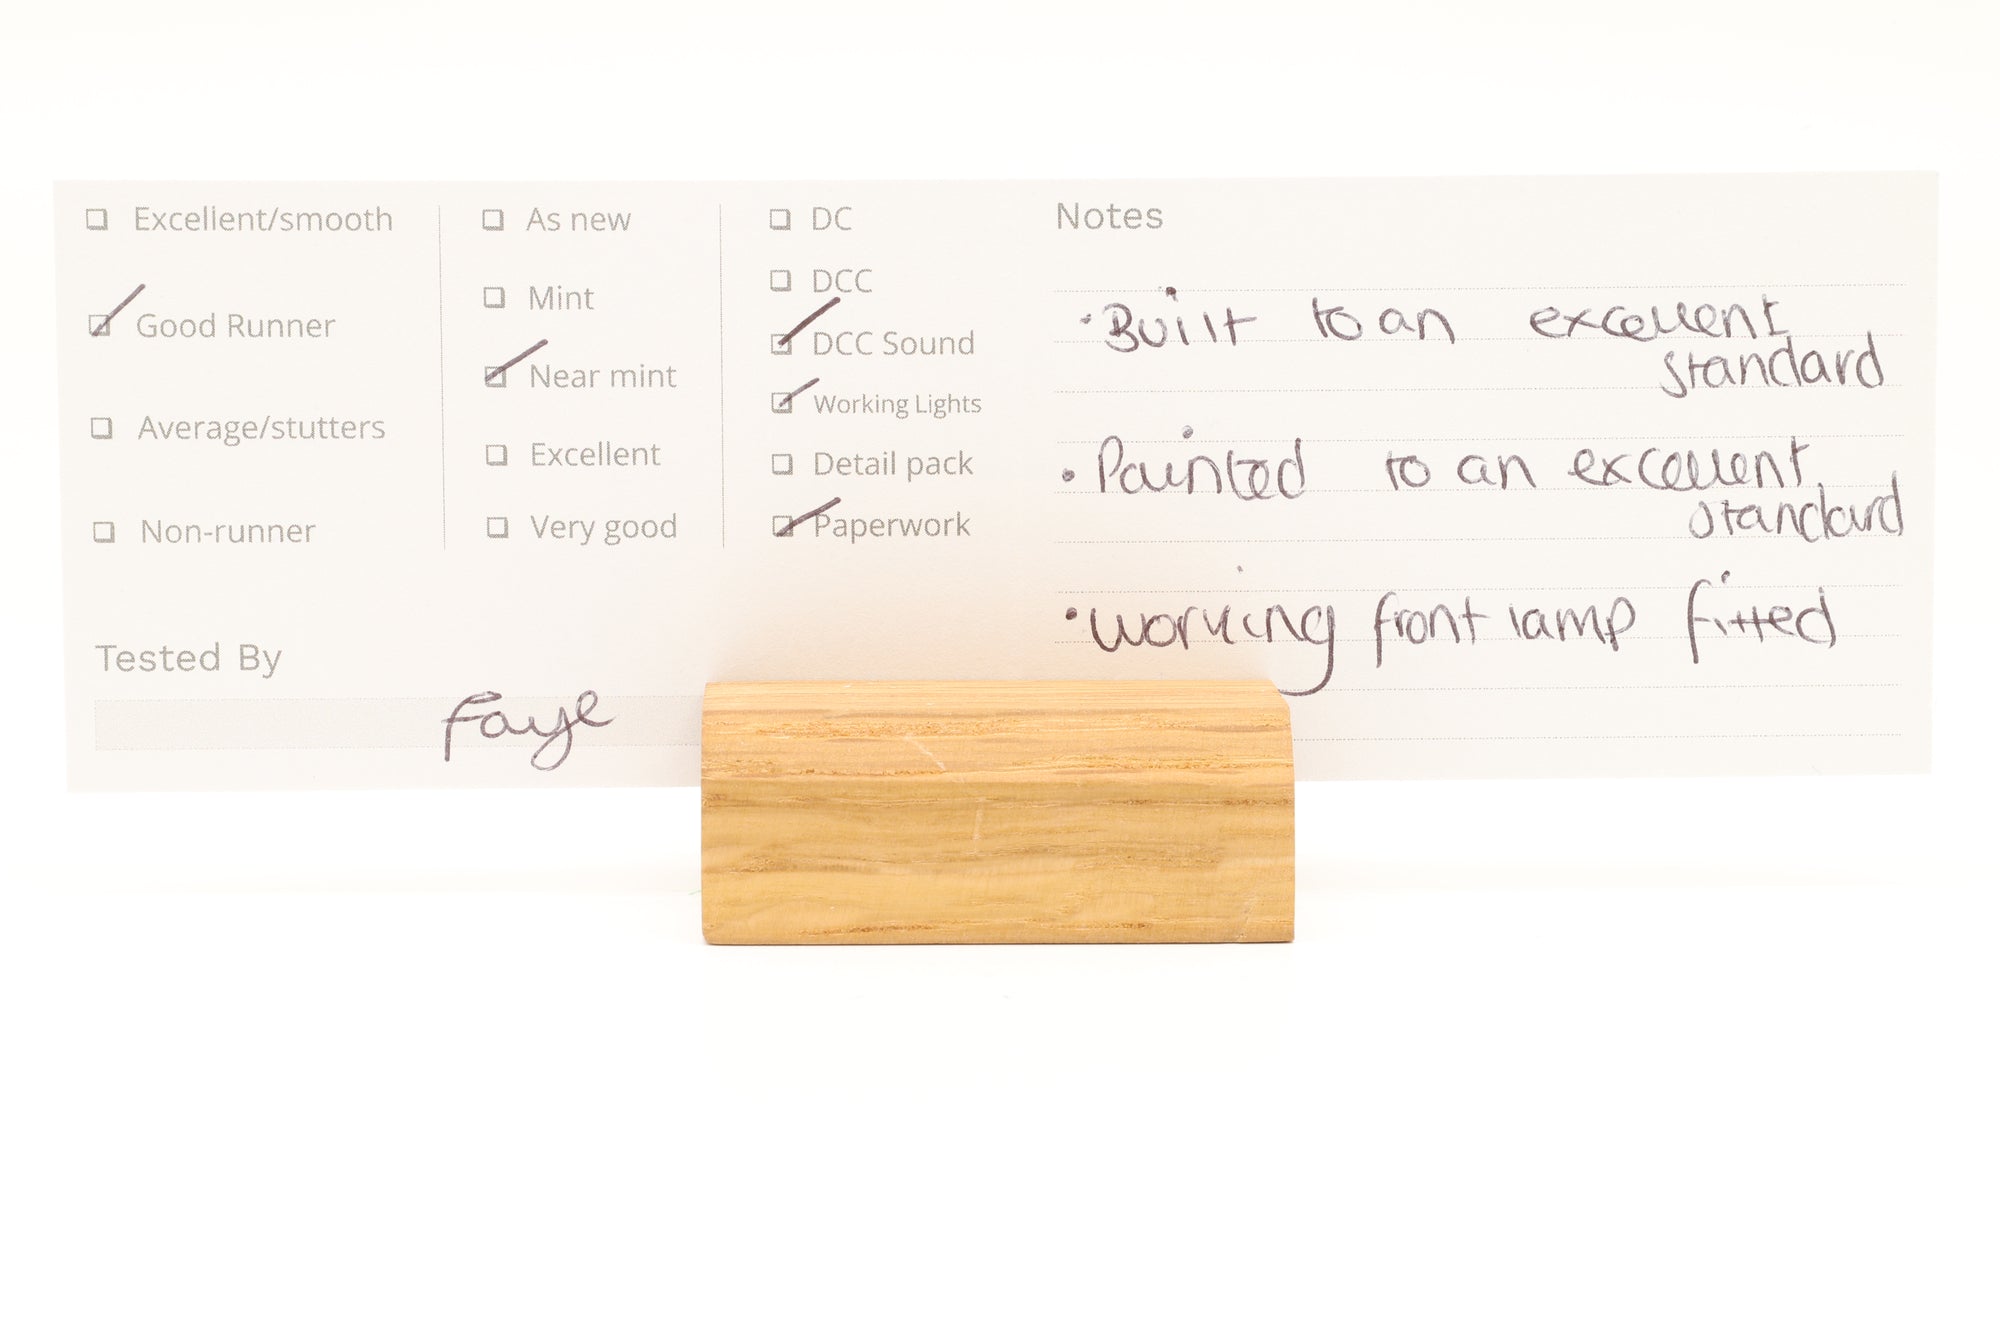 Excellent/smooth
Good Runner
Average/stutters
Non-runner
As new
Mint
Near mint
Excellent
Very good
DC
DCC
DCC Sound
Working Lights
Detail pack
Paperwork
Notes
• Built to an excellent
standard
• Painted to an excellent
standard
• Working front lamp fitted
Tested By
Faye